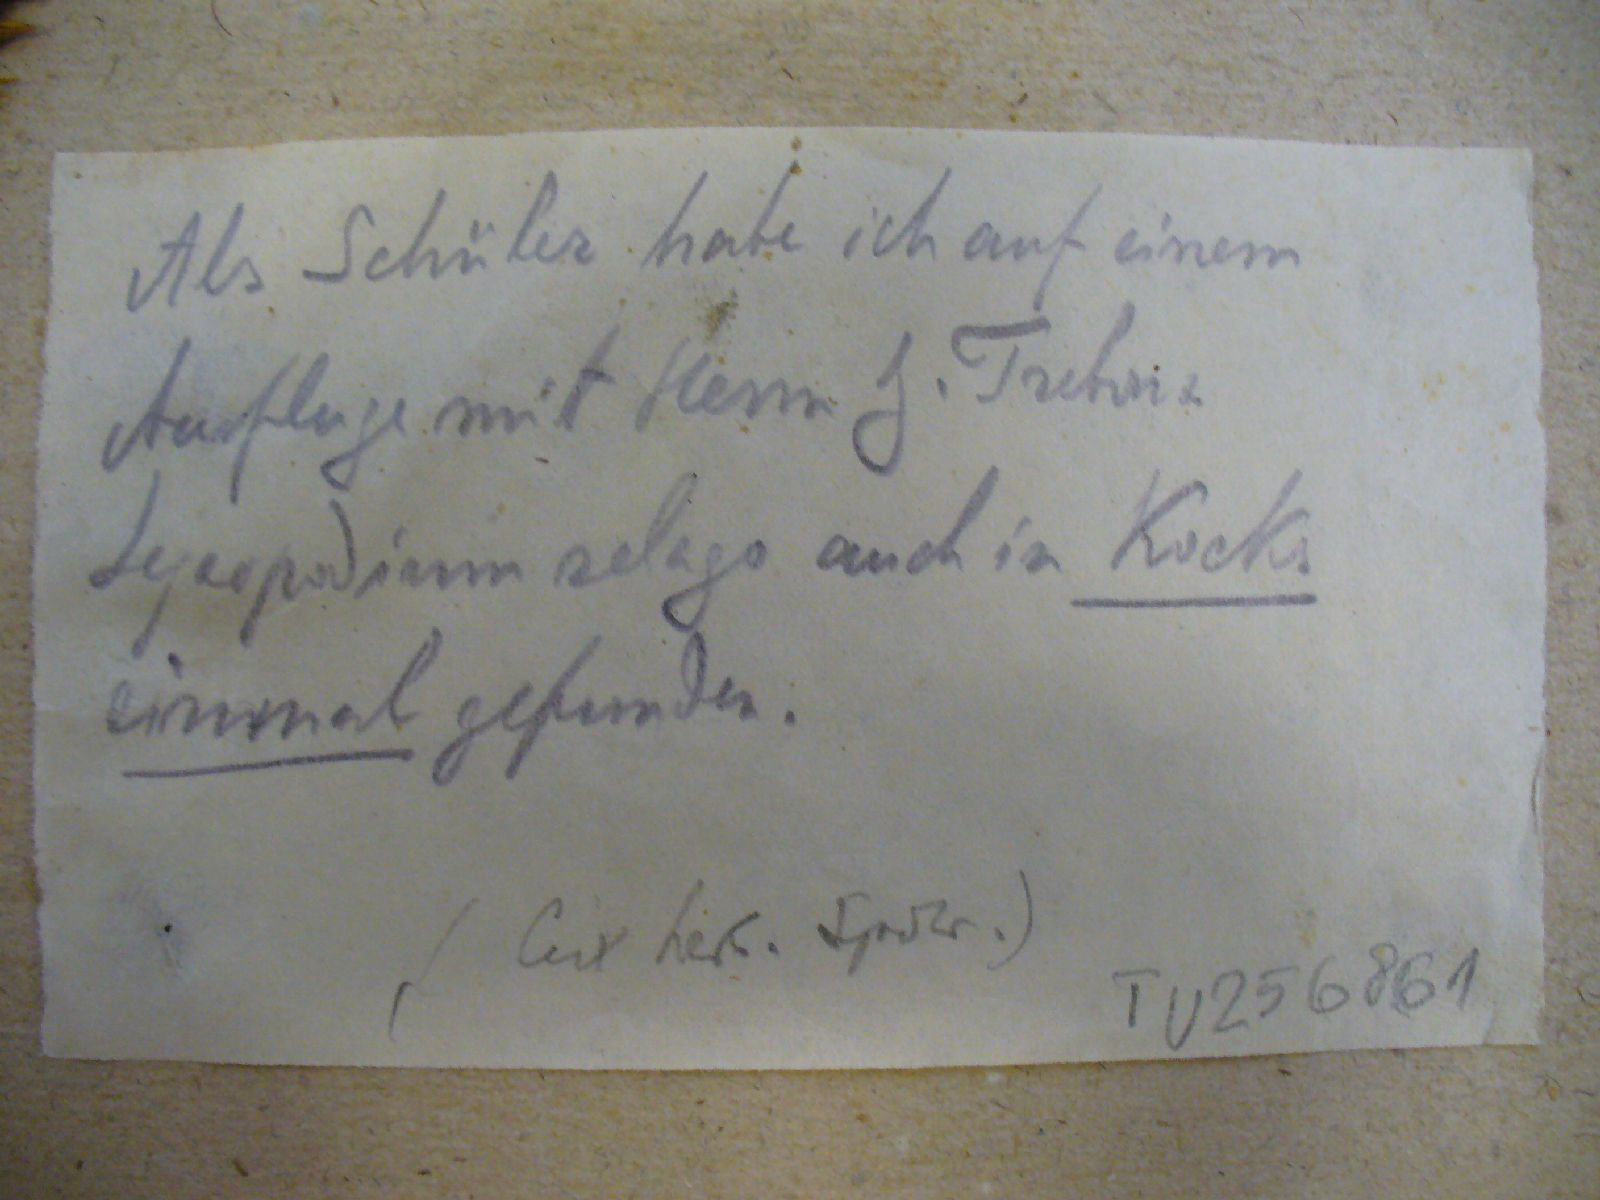 Als Schüler habe ich auf einem
Ausfluge mit Herrn J. Treboix
Lycopodium selago auch in Kocks
einmal gefunden.
herb.
TU256861